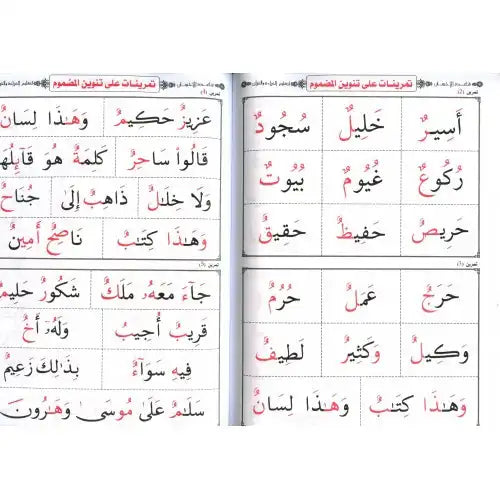 تمرينات على تنوين المضموم
تمرين (2)
أَسِيرٌ خَلِيلٌ سُجُودٌ
رُكُوعٌ غُيُومٌ بُيُوتٌ
حَرِيصٌ حَفِيظٌ حَقِيقٌ
تمرين (3)
حَرَجٌ عَمَلٌ حُرُمٌ
وَكِيلٌ وَكَثِيرٌ لَطِيفٌ
وَهَٰذَا كِتَٰبٌ وَهَٰذَا لِسَانٌ
تمرينات على تنوين المضموم
تمرين (4)
عَزِيزٌ حَكِيمٌ وَهَٰذَا لِسَانٌ
قَالُوا۟ سَاحِرٌ كَلِمَةٌ هُوَ قَآئِلُهَا
وَلَا خِلَٰلٌ ذَاهِبٌ إِلَىٰ جُنَاحٌ
وَهَٰذَا كِتَٰبٌ نَاصِحٌ أَمِينٌ
جَآءَ مَعَهُۥ مَلَكٌ شَكُورٌ حَلِيمٌ
قَرِيبٌ أُجِيبُ وَلَهُۥٓ أَخٌ
فِيهِ سَوَآءٌ بِذَٰلِكَ زَعِيمٌ
سَلَٰمٌ عَلَىٰ مُوسَىٰ وَهَٰرُونَ